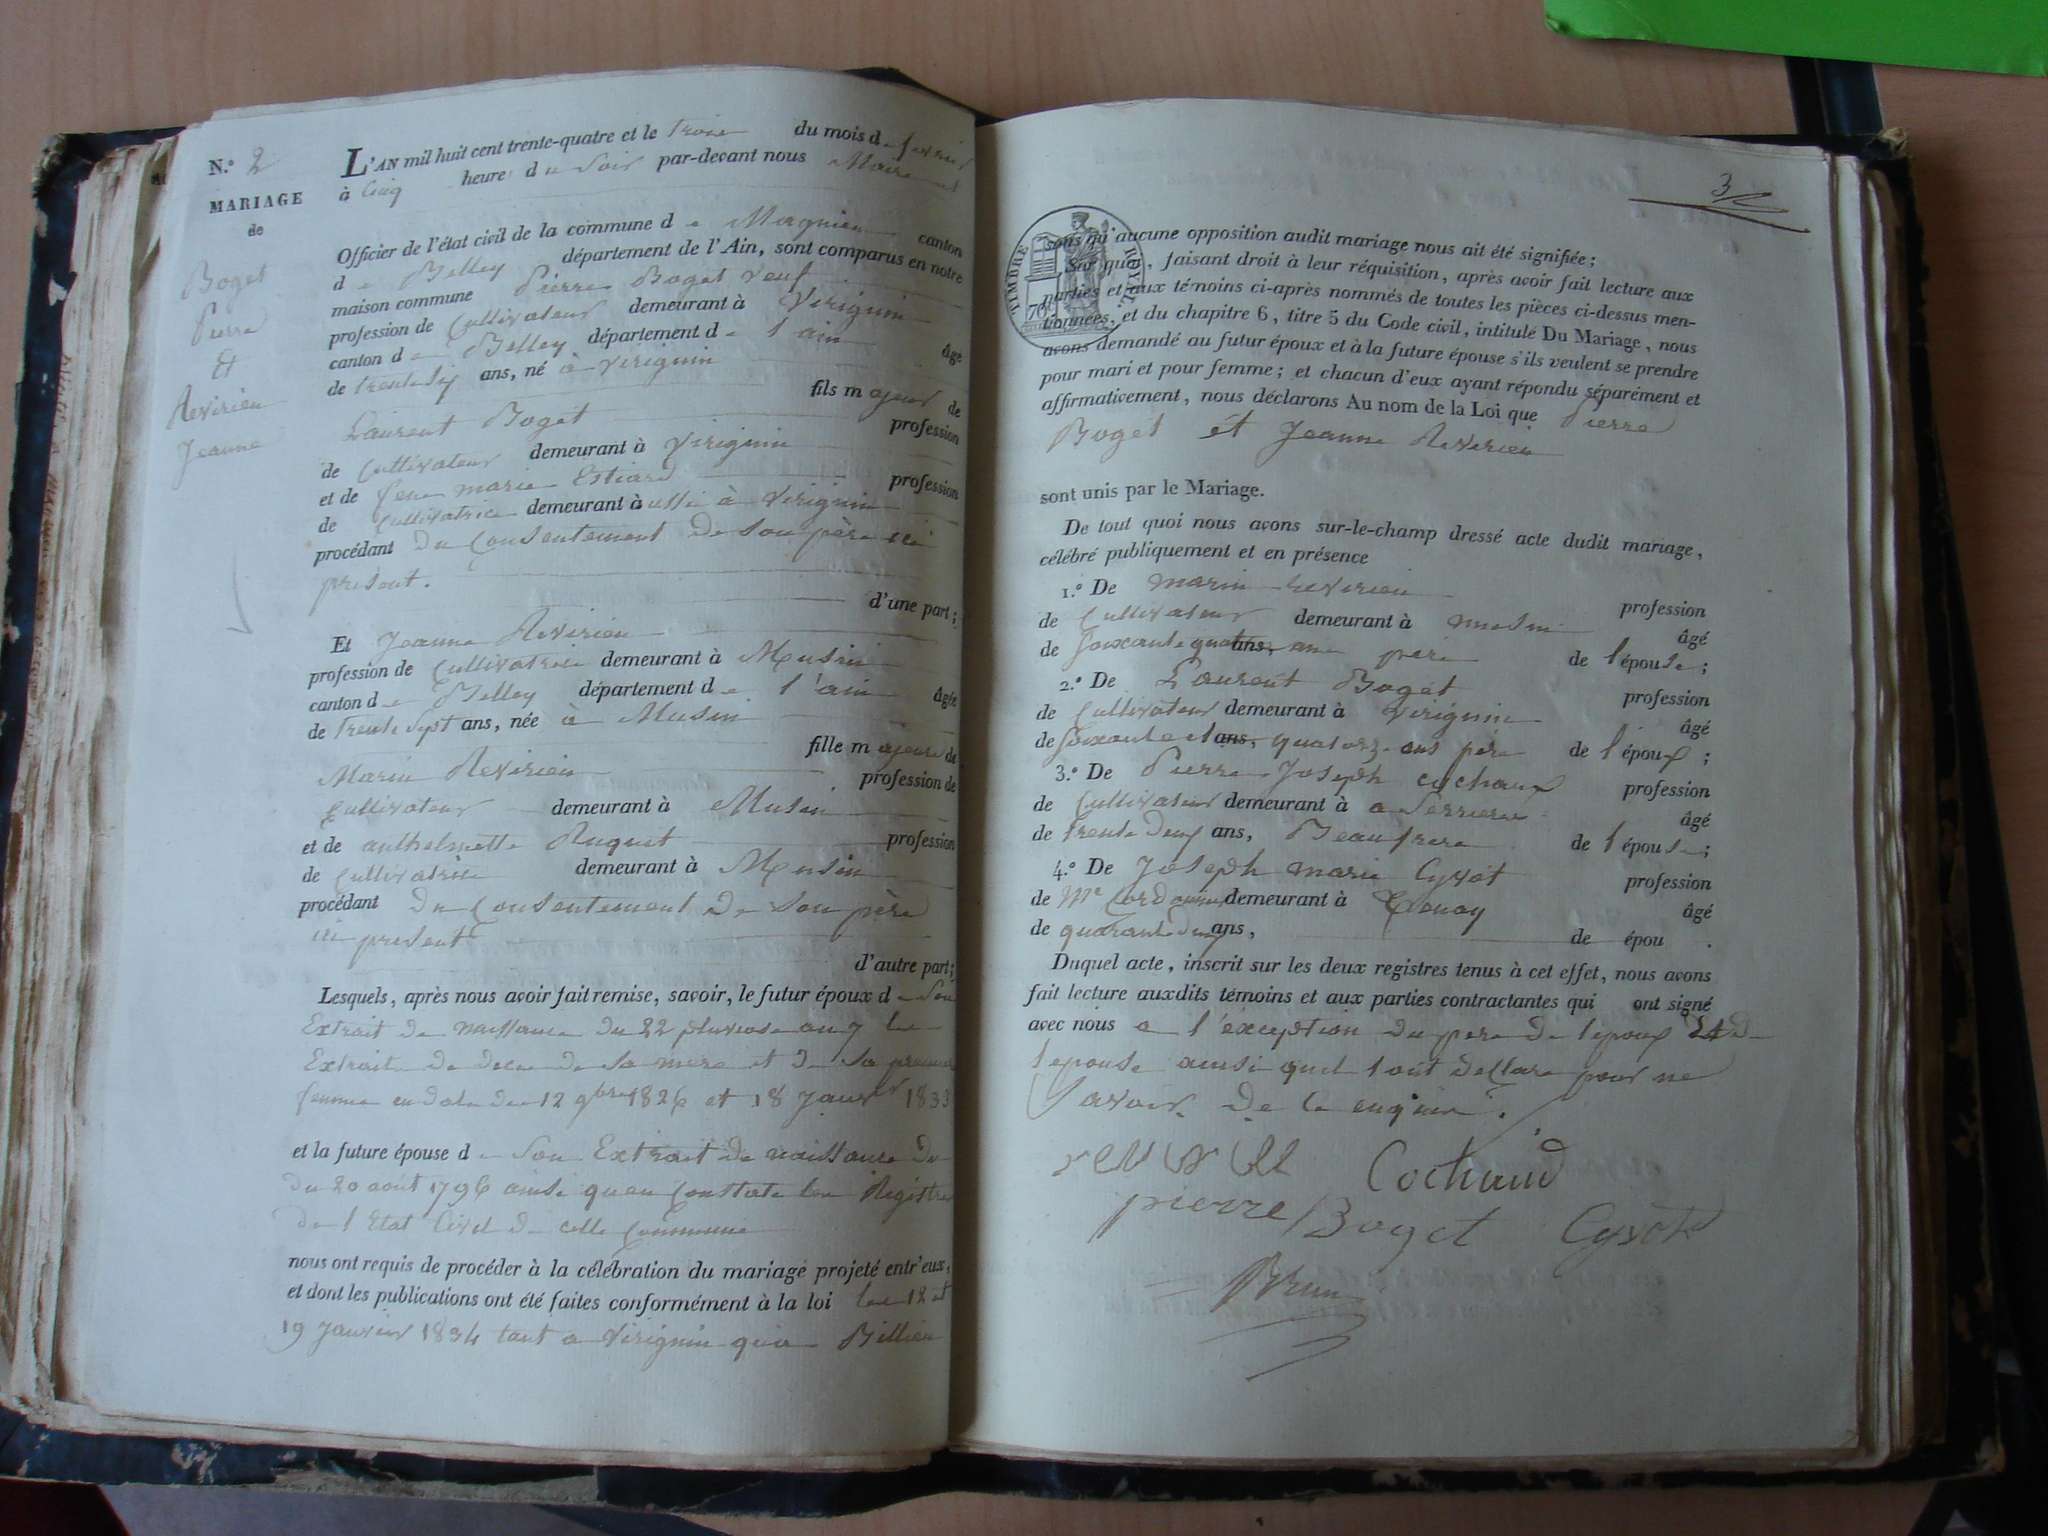 N.º 2
MARIAGE
de
Boget
Pierre
et
Revirieu
Jeanne
L'AN mil huit cent trente-quatre et le trois du mois de fevrier
à cinq heures du soir par-devant nous Maire et
Officier de l'état civil de la commune de Magnieu canton
de Belley département de l'Ain, sont comparus en notre
maison commune Pierre Boget veuf
profession de Cultivateur demeurant à Virignin
canton de Belley département de l'ain âgé
de trente six ans, né à Virignin
fils majeur de
Laurent Boget profession
de Cultivateur demeurant à Virignin
et de feue marie Estiard profession
de Cultivatrice demeurant aussi à Virignin
procédant du Consentement de son père ici
présent.
d'une part;
Et Jeanne Revirieu
profession de Cultivatrice demeurant à Musin
canton de Belley département de l'ain âgée
de trente sept ans, née à Musin
fille majeure de
Marin Revirieu profession de
Cultivateur demeurant à Musin
et de anthelmette Ruguet profession
de Cultivatrice demeurant à Musin
procédant du Consentement de son père
ici present
d'autre part;
Lesquels, après nous avoir fait remise, savoir, le futur époux de son
Extrait de naissance du 22 pluviose an 7 les
Extraits de deces de sa mere et de sa premiere
femme en date du 12 9bre 1826 et 18 Janvier 1833
et la future épouse de son Extrait de naissance du
du 20 aout 1796 ainsi quen Constate les Registres
de l'Etat Civil de cette Commune
nous ont requis de procéder à la célébration du mariage projeté entr'eux,
et dont les publications ont été faites conformément à la loi les 12 et
19 Janvier 1834 tant a Virignin qu'a Billieu
3
TIMBRE ROYAL
70
sans qu'aucune opposition audit mariage nous ait été signifiée;
Sur quoi, faisant droit à leur réquisition, après avoir fait lecture aux
parties et aux témoins ci-après nommés de toutes les pièces ci-dessus men-
tionnées, et du chapitre 6, titre 5 du Code civil, intitulé Du Mariage, nous
avons demandé au futur époux et à la future épouse s'ils veulent se prendre
pour mari et pour femme; et chacun d'eux ayant répondu séparément et
affirmativement, nous déclarons Au nom de la Loi que Pierre
Boget et Jeanne Revirieu
sont unis par le Mariage.
De tout quoi nous avons sur-le-champ dressé acte dudit mariage,
célébré publiquement et en présence
1.º De marin revirieu profession
de Cultivateur demeurant à musin âgé
de soixante quatre ans, père de l'épouse;
2.º De Laurent Boget profession
de Cultivateur demeurant à Virignin âgé
de soixante et ans, quatorze ans père de l'époux;
3.º De Pierre Joseph cochaux profession
de Cultivateur demeurant à a Serriere âgé
de trente deux ans, Beaufrere de l'épouse;
4.º De Joseph marie Cyvot profession
de Me Cordonnier demeurant à Tenay âgé
de quarante deux ans, de épou .
Duquel acte, inscrit sur les deux registres tenus à cet effet, nous avons
fait lecture auxdits témoins et aux parties contractantes qui ont signé
avec nous a l'exception du pere de lepoux Et de
l'epouse ainsi quil l'ont declare pour ne
Savoir de ce enquis.
Cochaud
pierre Boget Cyvot
Brun